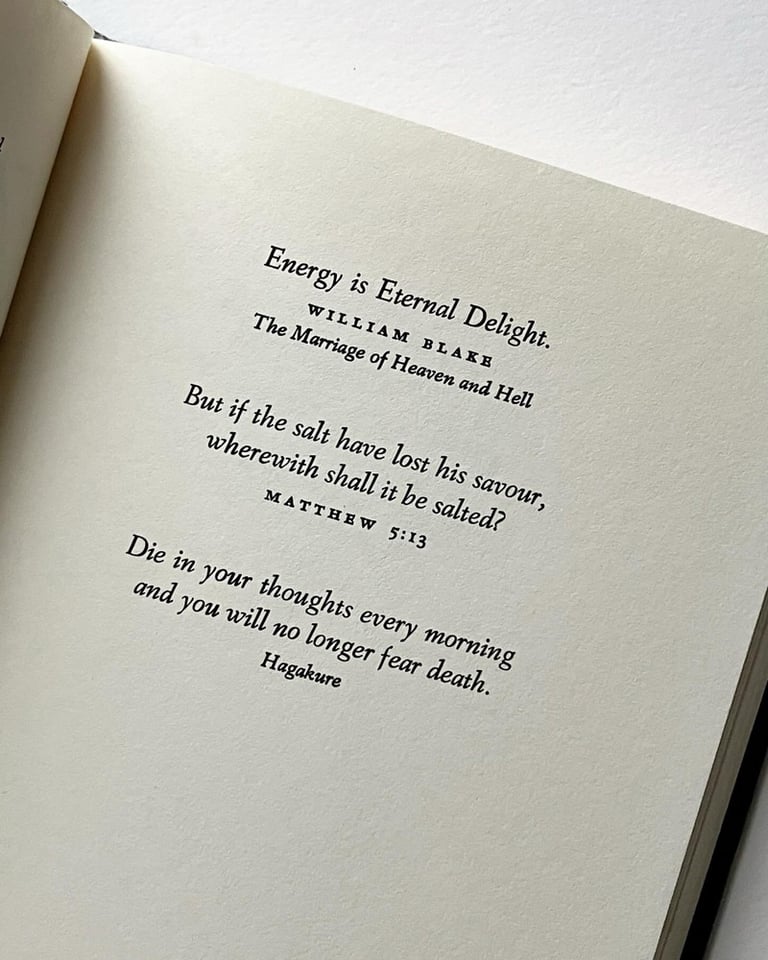 Energy is Eternal Delight.
WILLIAM BLAKE
The Marriage of Heaven and Hell
But if the salt have lost his savour,
wherewith shall it be salted?
MATTHEW 5:13
Die in your thoughts every morning
and you will no longer fear death.
Hagakure